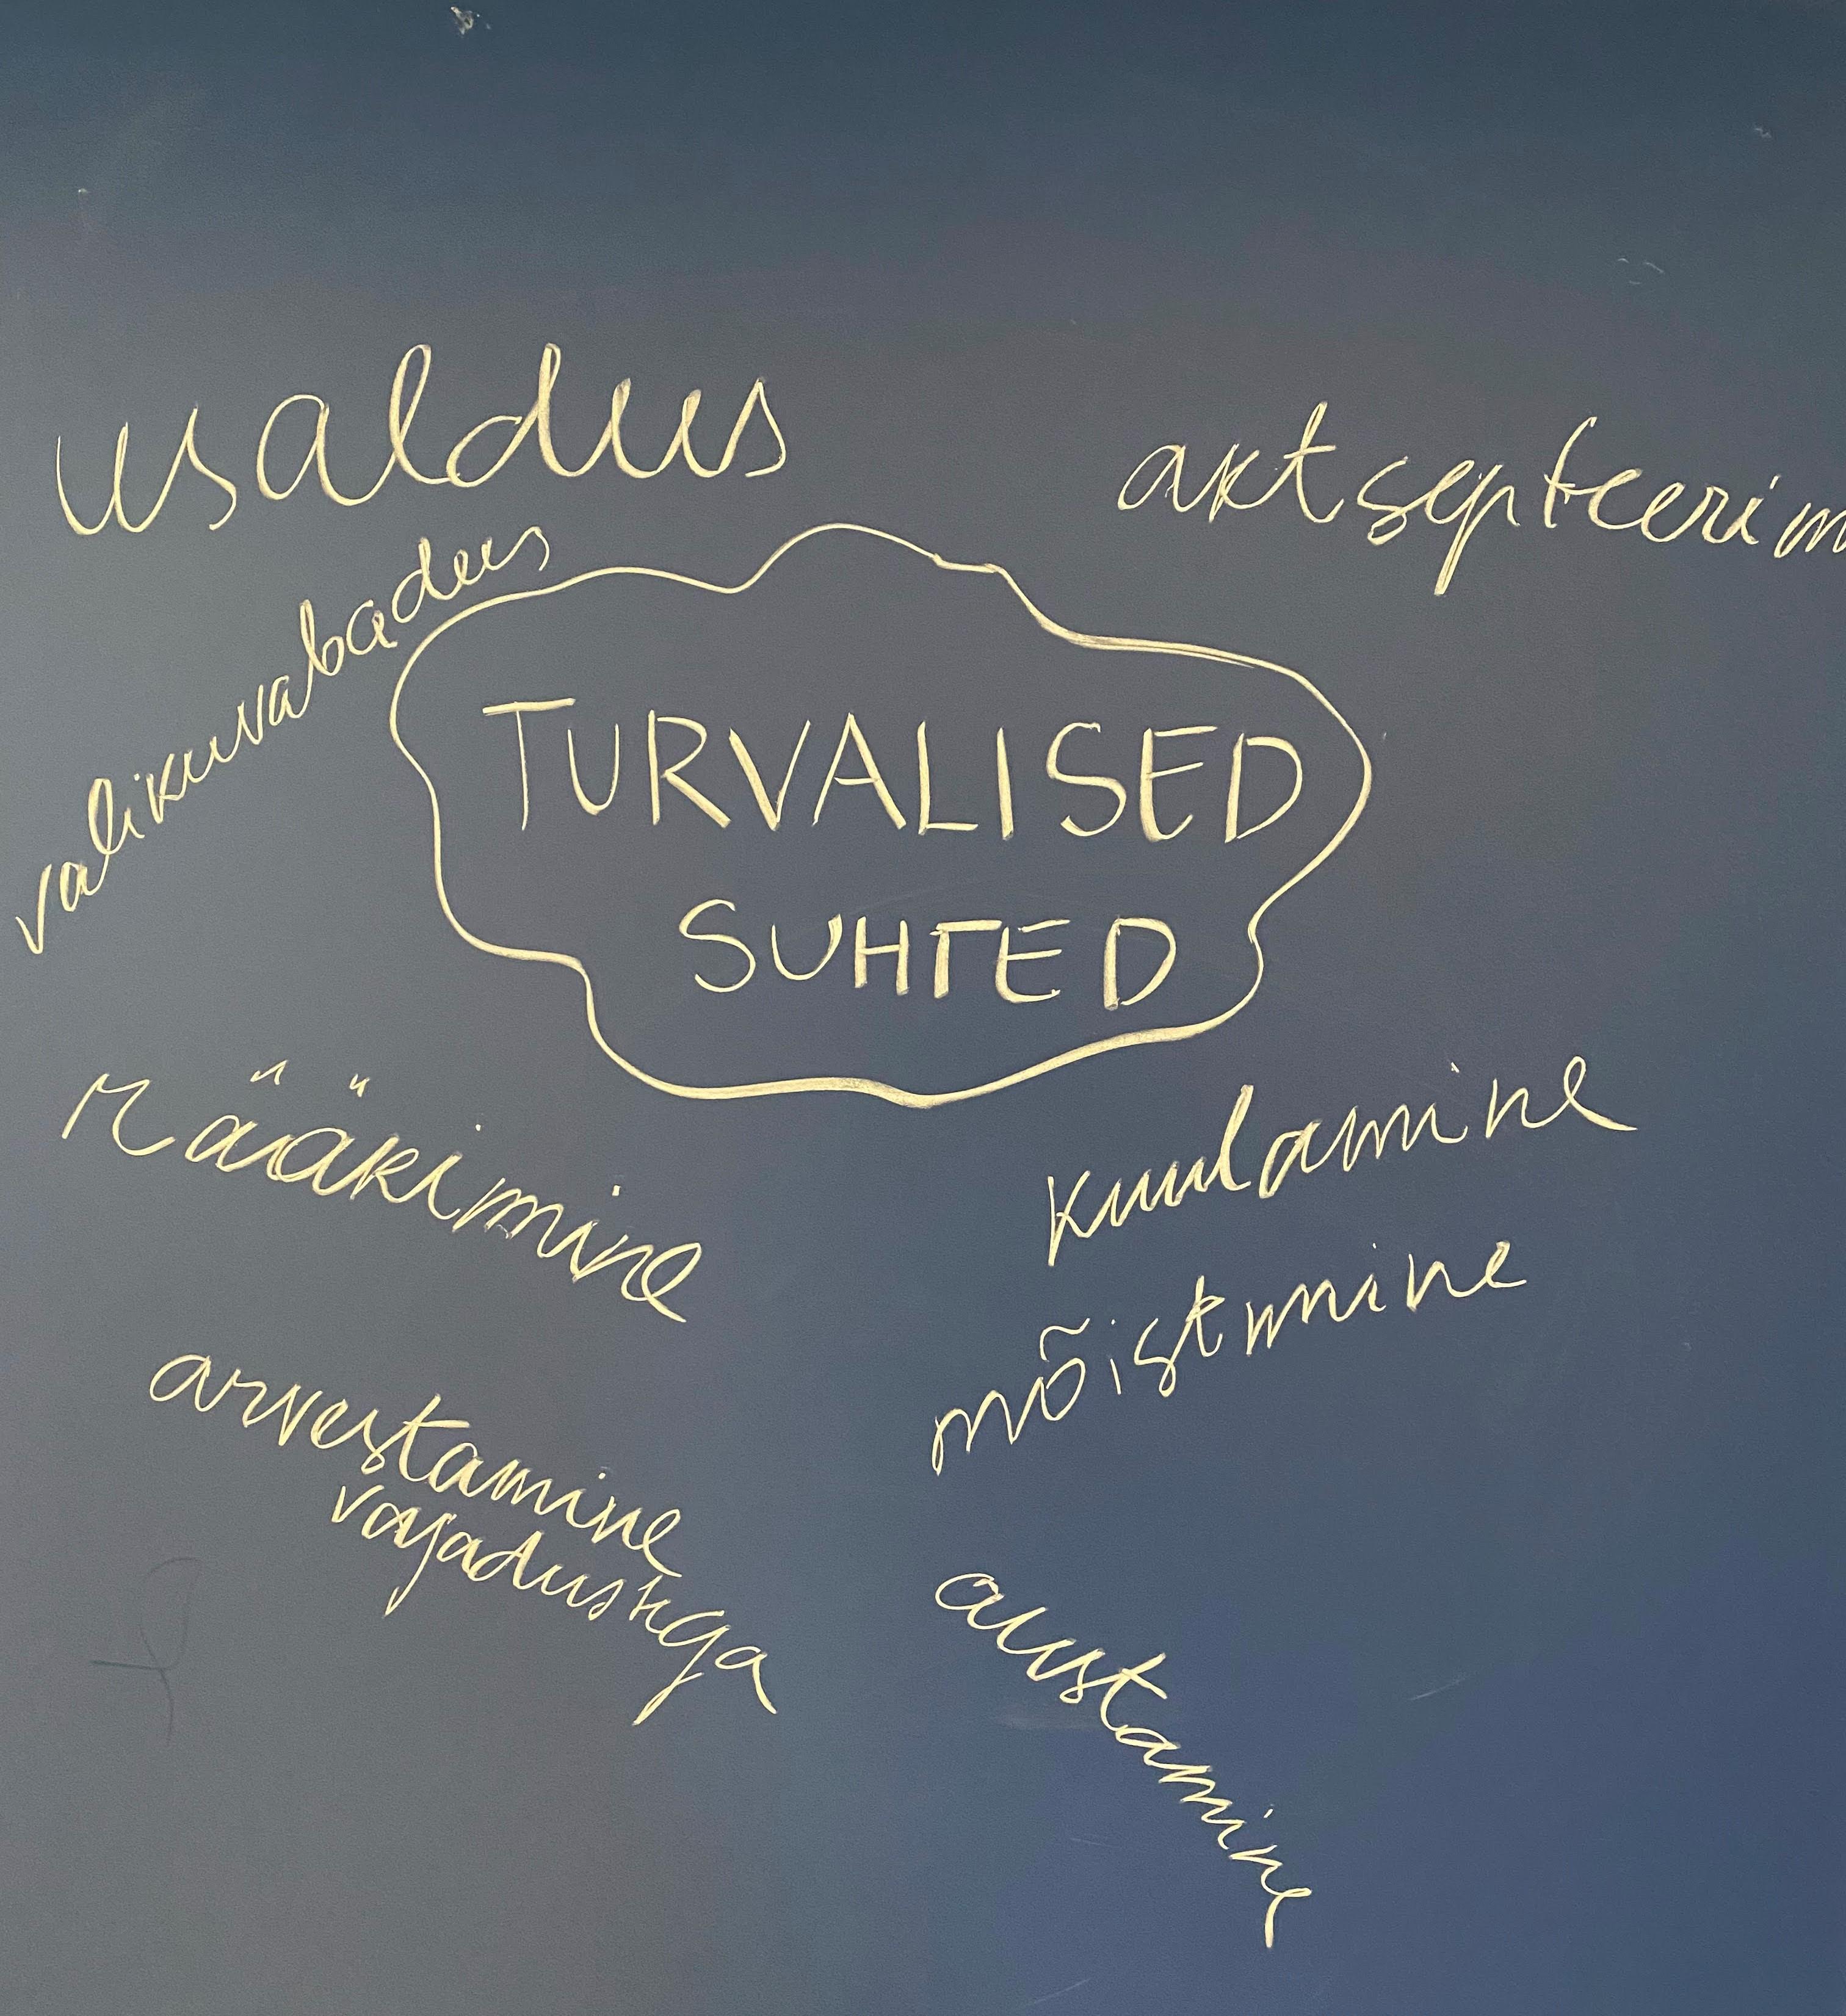 usaldus
aktsepteerim
valikuvabadus
TURVALISED
SUHTED
rääkimine
kuulamine
mõistmine
arvestamine
vajadustega
austamine